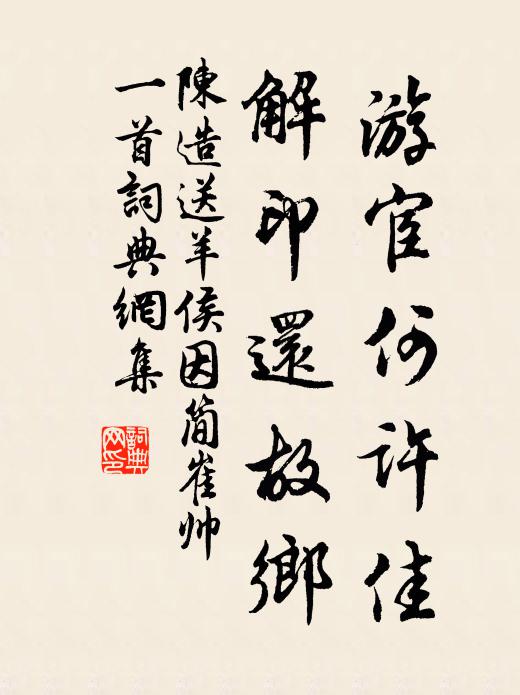 游宦何许佳
解印還故鄉
陳造送羊侯因簡崔帅
一首詞典網集
詞典网印